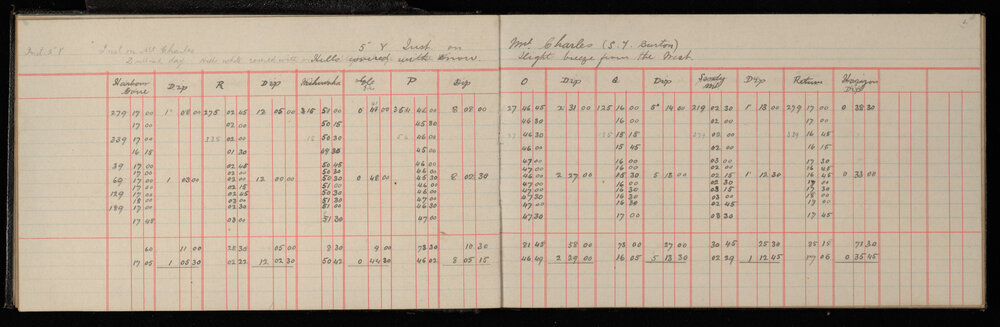 Inst 5 Y Inst on Mt Charles
5 Y Inst. on Mt Charles (S.Y. Burton)
Hills covered with snow. Slight breeze from the West.
Harbour Cone Dip R Dip P Dip O Dip Q Dip Dip Return Horizon Dip
279 17 00 1° 08 00 275 02 45 12 05 00 315 51 00 0 41 00 354 46 00 8 08 00 27 46 45 2 31 00 125 16 00 5° 14 00 219 02 30 1° 13 00 279 17 00 0 38 30
17 00 02 00 50 15 45 30 46 30 16 00 02 00 17 00
339 17 00 335 02 00 15 50 30 54 46 00 46 30 15 15 02 00 339 16 45
16 15 01 30 49 30 45 00 46 00 15 45 02 00 16 45
39 17 00 02 45 50 45 46 00 47 00 16 00 03 00 17 30
17 00 02 00 50 30 46 00 47 00 16 00 02 00 16 45
69 17 00 1 03 00 02 00 12 00 00 50 30 0 48 00 45 30 8 02 30 46 00 2 27 00 15 30 5 13 00 02 15 1° 12 30 16 45 0 33 00
17 00 02 15 51 00 46 00 47 00 16 00 02 30 17 00
129 17 00 02 45 50 30 46 00 47 00 16 30 03 15 17 30
18 00 03 00 51 30 47 00 47 30 16 30 03 00 18 00
189 17 00 02 30 51 00 46 30 47 00 16 30 02 45 17 00
17 45 03 00 51 30 47 00 47 30 17 00 03 30 17 45
60 11 00 28 30 05 00 8 30 9 00 73 30 10 30 81 45 58 00 73 00 27 00 30 45 25 30 25 15 71 30
17 05 1 05 30 02 22 12 02 30 50 42 0 44 30 46 02 8 05 15 46 49 2 29 00 16 05 5 13 30 02 29 1 12 45 17 06 0 35 45